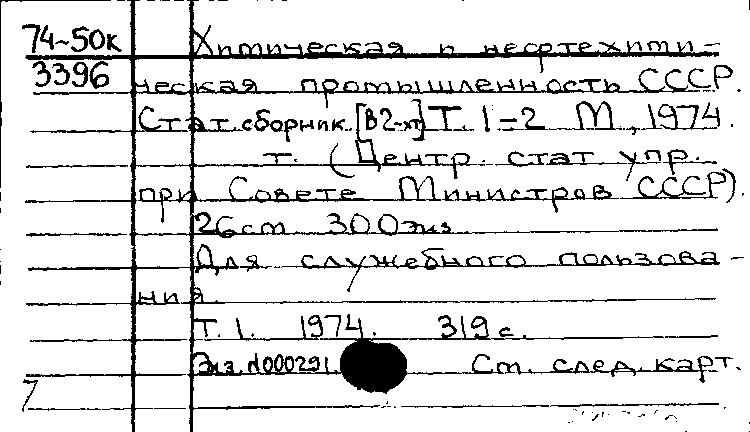 74-50к Химическая и нефтехими-
3396 ческая промышленность СССР.
Стат. сборник. [В 2-хт] Т. 1-2 М., 1974.
т. (Центр. стат. упр.
при Совете Министров СССР).
26 см 300 экз
Для служебного пользова-
ния.
Т. 1. 1974. 319 с.
Экз. N000291. См. след. карт.